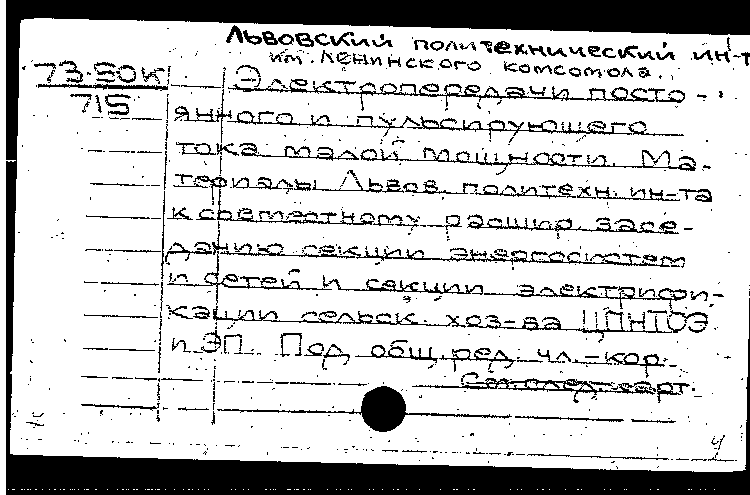 Львовский политехнический ин-т
им. Ленинского комсомола.
73.50к
715
Электропередачи посто-
янного и пульсирующего
тока малой мощности. Ма-
териалы Львов. политехн. ин-та
к совместному расшир. засе-
данию секции энергосистем
и сетей и секции электрифи-
кации сельск. хоз-ва ЦПНТОЭ
и ЭП. Под общ. ред. чл.-кор.
См. след. карт.